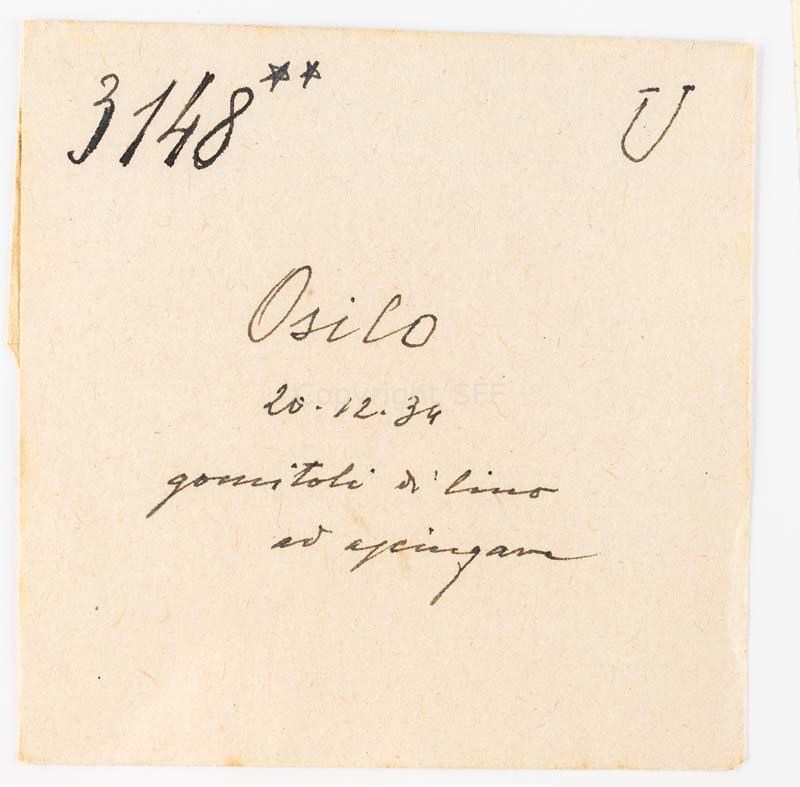 3148** U
Osilo
20.12.34
gomitoli di lino
ad
Copyright SFF